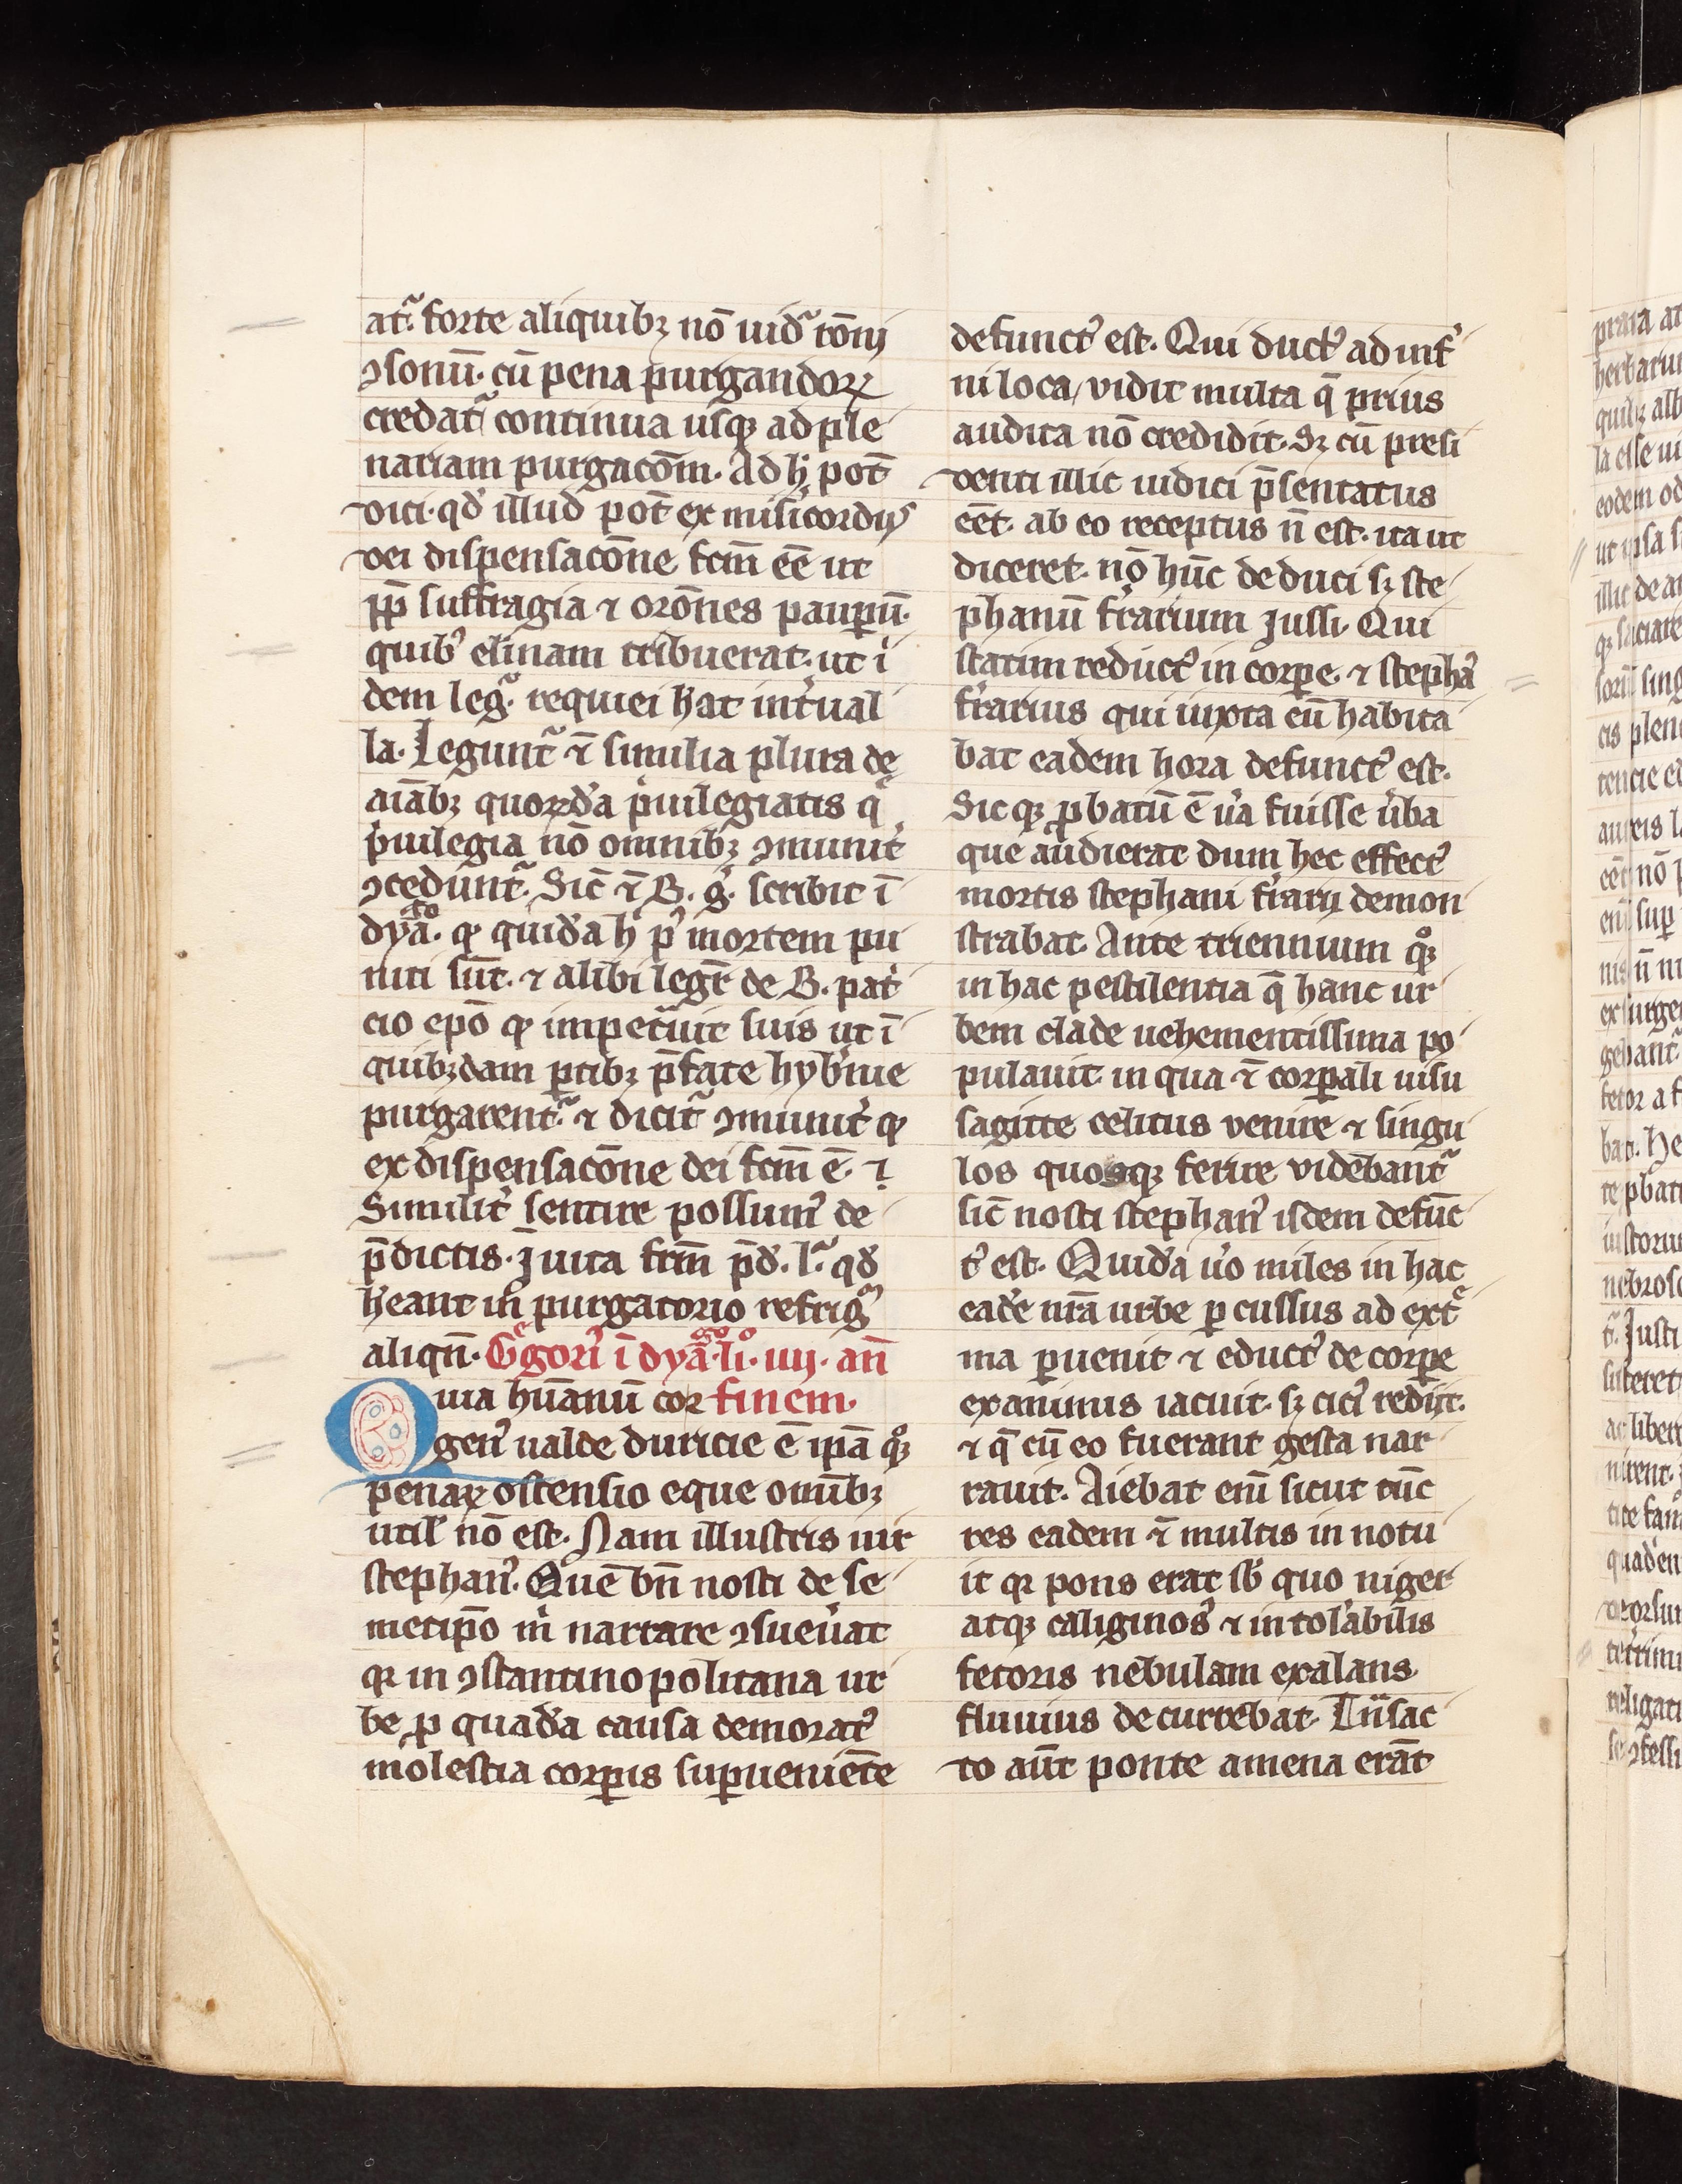 atᷓ. forte aliquibꝫ nō uidᷓ rōnj
ꝯsonū. cū pena purgandoꝝ
credatᷓ continua usqꝫ ad ple
nariam purgacōm. Ad hͦ pot̄
dici. qd̛ illud pot̄ ex misicordijs
dei dispensacōne fcm̄ eē ut
ꝓpt̄ suffragia ⁊ orōnes paupꝝū.
quibꝰ elinam tribuerat. ut i
dem legᷓ. requiei hat int̛ual
la. Leguntᷓ ⁊̄ similia plura de
aīabꝫ quorūd̛a p̛uilegiatis qͥ
p̛uilegia nō omnibꝫ ꝯmunit̛
ꝯceduntᷓ. Sic̄ ⁊̄ B. g̛. scribit ī
dyaͣ. qꝫ quid̛a hͦ pꝰ mortem pu
niti sūt. ⁊ alibi legr̄ de B. pat̛
cio ep̄o qꝫ impet̛uit suis ut ī
quibꝫdam ꝑtibꝫ p̄fate hyb̛nie
purgarentᷓ. ⁊ dicitᷓ ꝯmunit̛ qꝫ
ex dispensacōne dei fcm̄ ē. ⁊.
Similit̛ sentire possumꝰ de
p̄dictis. Juita fr̄m p̄d̛. lᷓ. qd̛
h̛eant in̄ purgatorio refrigͫ
aliqn̄. Gͤgoriꝰ ī dyaͣ. liͦ. iiij. an̄
Quia hūanū cor finem.
gen̛ ualde duricie ē ip̄a qͦꝫ
penaꝝ ostensio eque omībꝫ
util̛ nō est. Nam illustris uir
stephanꝰ. Quē bn̄ nosti de se
metip̄o m̛ narrare ꝯsueưat
qꝛ in ꝯstantinopolitana ur
be ꝓ quad̛a causa demoratꝰ
molestia corꝑis suꝑueniēte
defunctꝰ est. Qui ductꝰ ad inf̛
ni loca, vidit multa q̄ prius
audita nō credidit. Sꝫ cū presi
denti illic iudici p̄sentatus
eēt. ab eo receptus n̄ est. ita ut
diceret. nō hūc deduci sꝫ ste
phanū f̛rarium Jussi. Qui
statim reductꝰ in corꝑe. ⁊ stephaꝰ
f̛rarius qui iuxta eū habita
bat eadem hora defunctꝰ est.
Sicqꝫ ꝓbatū ē ưa fuisse ưba
que audierat dum hec effectꝰ
mortis stephani f̛rarij demon
strabat. Ante triennium qͦꝫ
in hac pestilentia q̄ hanc ur
bem clade uehementissima po
pulauit. in qua ⁊̄ corꝑali uisu
sagitte celitus venire ⁊ singu
los quosqꝫ ferire videbantᷓ
sic̄ nosti stephanꝰ isdem defūc
tꝰ est. Quid̛a ưo miles in hac
ead̛e nr̄a urbe ꝑcussus ad extͤ
ma ꝑuenit ⁊ eductꝰ de corꝑe
exanimis iacuit. sꝫ ciciꝰ redijt.
⁊ q̄ cū eo fuerant gesta nar
rauit. Aiebat eni̅ sicut tūc
res eadem ⁊̄ multis in notu
it qꝛ pons erat sb̛ quo niger
atqꝫ caliginosꝰ ⁊ intol̛abilis
fetoris nebulam exalans
fluuius decurrebat. Tͣnsac
to aūt ponte amena erāt